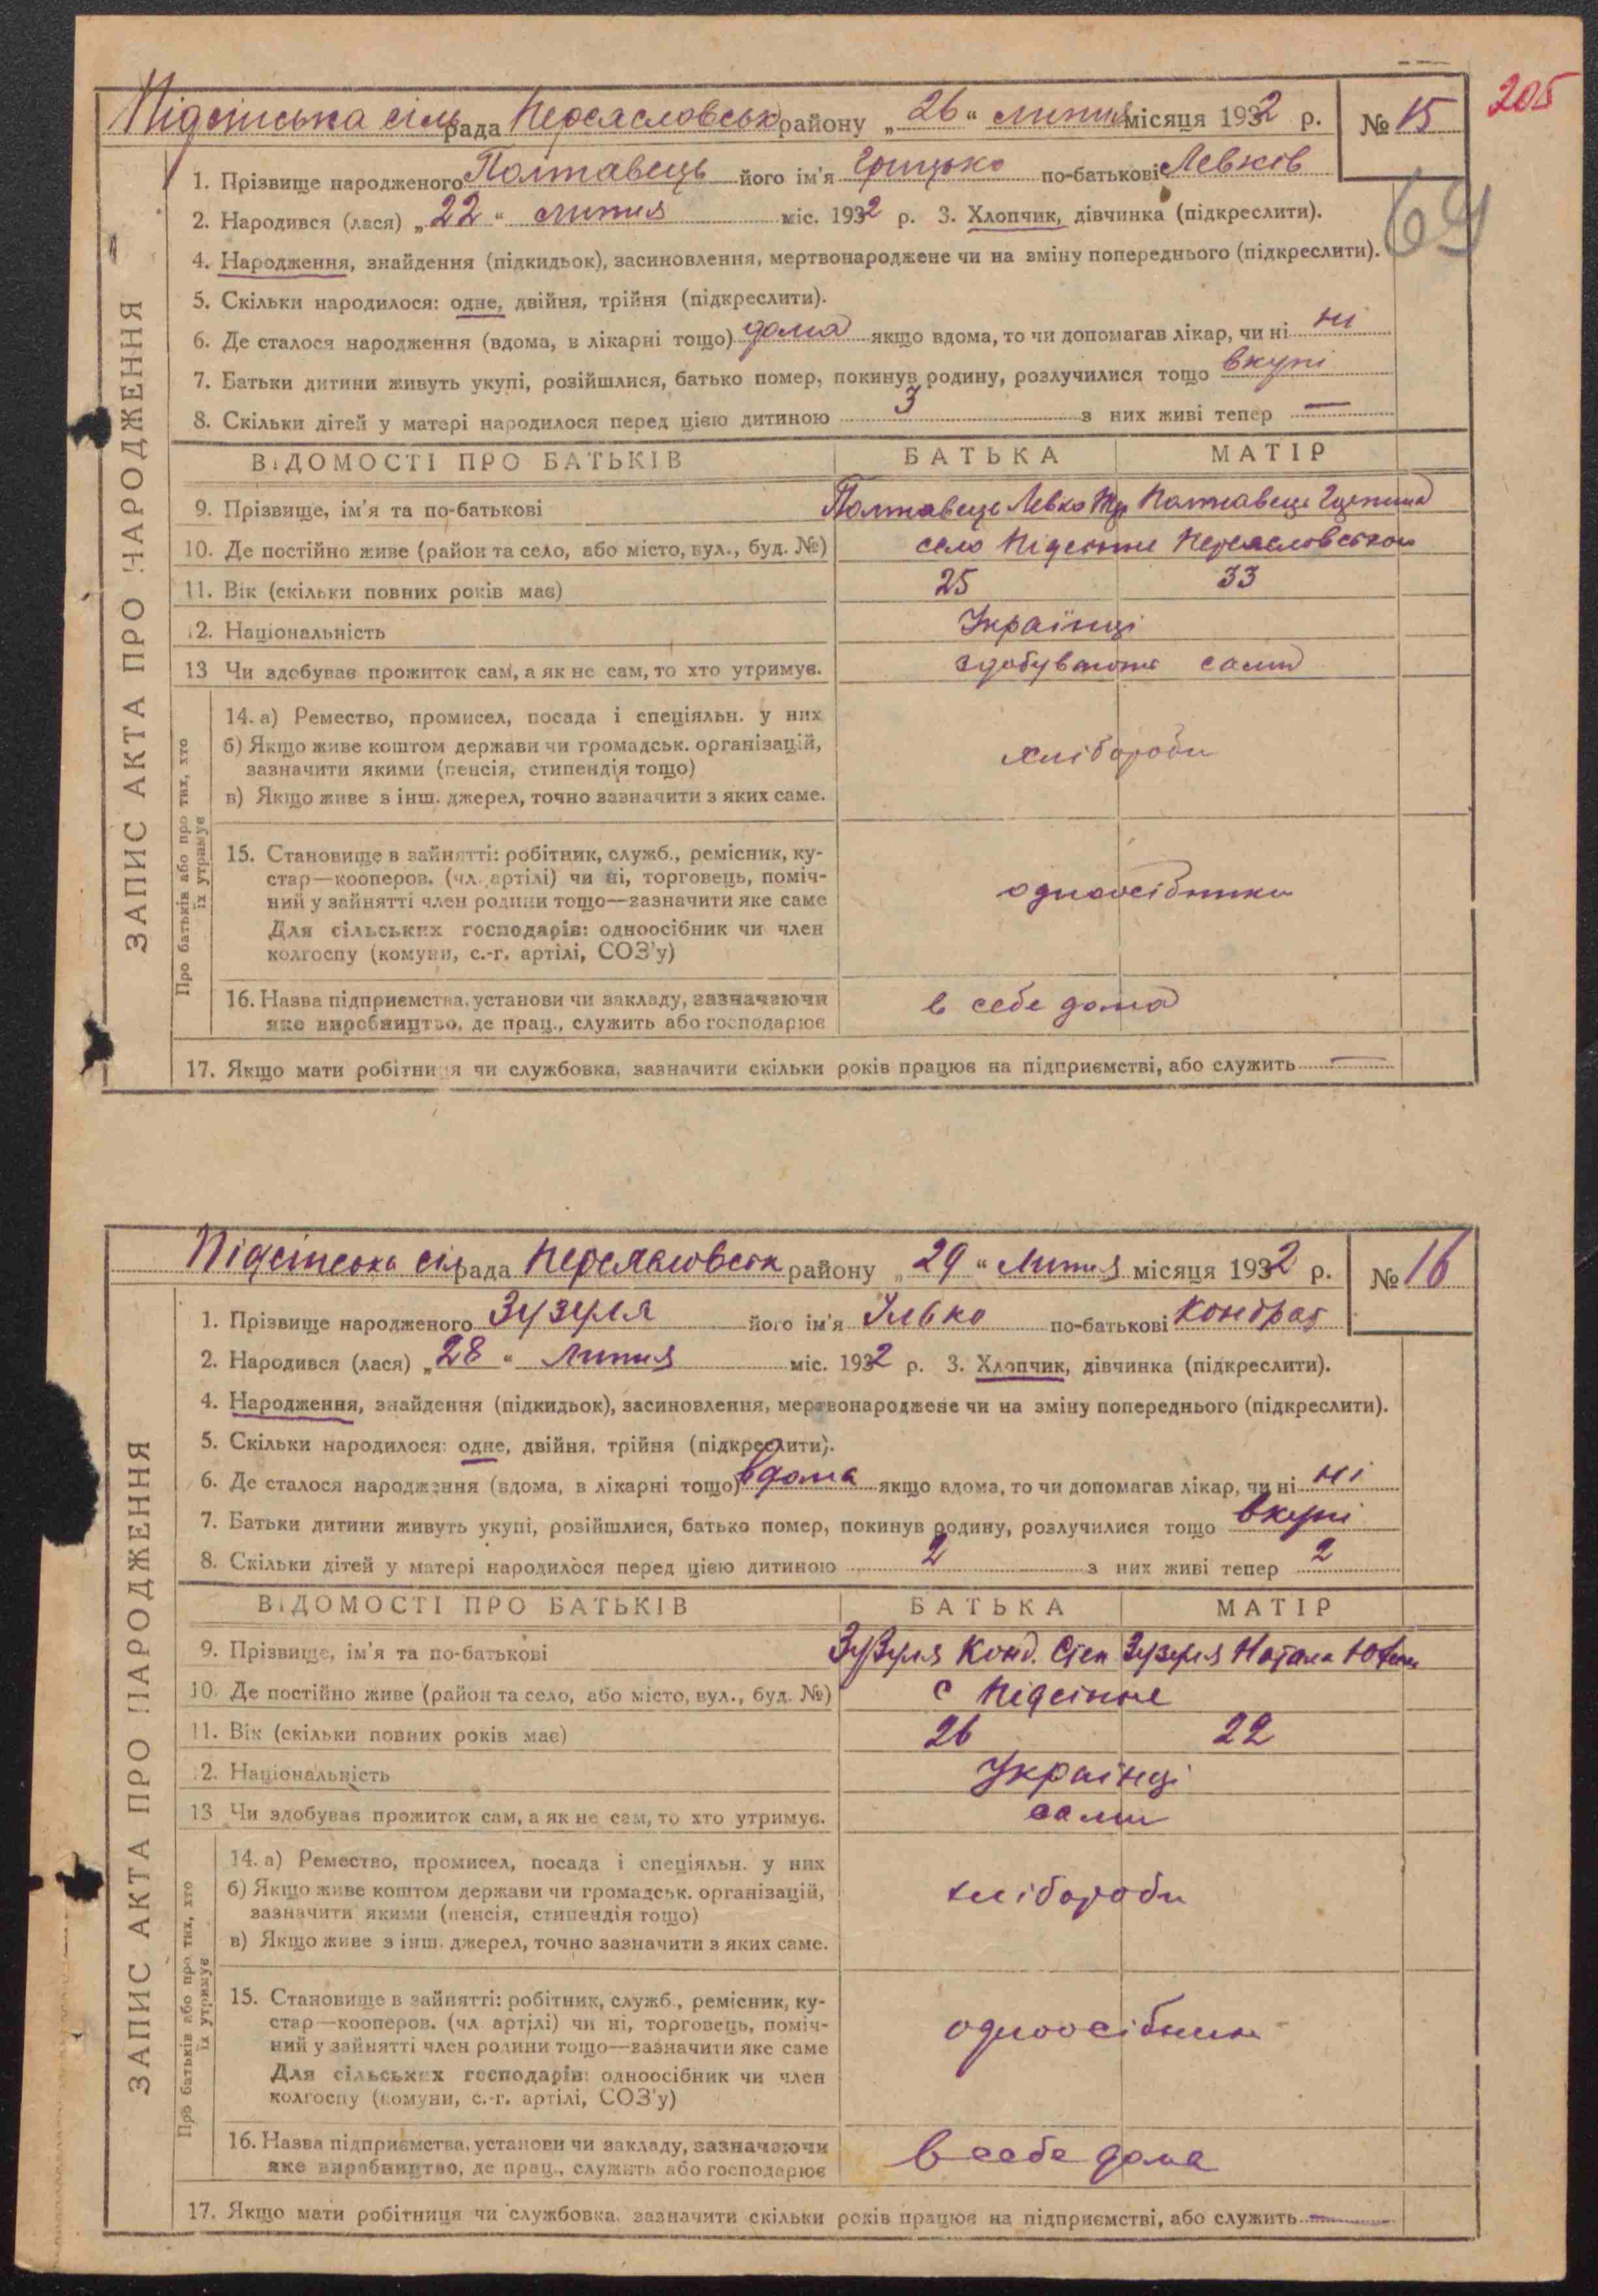 205
Підсінська сільрада Переясловськ району „26“ липня місяця 1932 р. № 15
69
ЗАПИС АКТА ПРО НАРОДЖЕННЯ
1. Прізвище народженого Полтавець його ім'я Грицько по-батькові Левків
2. Народився (лася) „22“ липня міс. 1932 р. 3. Хлопчик, дівчинка (підкреслити).
4. Народження, знайдення (підкидьок), засиновлення, мертвонароджене чи на зміну попереднього (підкреслити).
5. Скільки народилося: одне, двійня, трійня (підкреслити).
6. Де сталося народження (вдома, в лікарні тощо) дома якщо вдома, то чи допомагав лікар, чи ні ні
7. Батьки дитини живуть укупі, розійшлися, батько помер, покинув родину, розлучилися тощо вкупі
8. Скільки дітей у матері народилося перед цією дитиною 3 з них живі тепер —
ВІДОМОСТІ ПРО БАТЬКІВ БАТЬКА МАТІР
9. Прізвище, ім'я та по-батькові Полтавець Левко Полтавець
10. Де постійно живе (район та село, або місто, вул., буд. №) село Підсінне Переясловського
11. Вік (скільки повних років має) 25 33
12. Національність Українці
13 Чи здобуває прожиток сам, а як не сам, то хто утримує. здобувають сами
Про батьків або про тих, хто їх утримує
14. а) Ремество, промисел, посада і спеціяльн. у них
б) Якщо живе коштом держави чи громадськ. організацій,
зазначити якими (пенсія, стипендія тощо) хлібороби
в) Якщо живе з інш. джерел, точно зазначити з яких саме.
15. Становище в зайнятті: робітник, служб., ремісник, ку-
стар—кооперов. (чл. артілі) чи ні, торговець, поміч-
ний у зайнятті член родини тощо—зазначити яке саме одноосібники
Для сільських господарів: одноосібник чи член
колгоспу (комуни, с.-г. артілі, СОЗ'у)
16. Назва підприємства, установи чи закладу, зазначаючи в себе дома
яке виробництво, де прац., служить або господарює
17. Якщо мати робітниця чи службовка, зазначити скільки років працює на підприємстві, або служить —
Підсінська сільрада Переясловськ району „29“ Липня місяця 1932 р. № 16
ЗАПИС АКТА ПРО НАРОДЖЕННЯ
1. Прізвище народженого Зузуля його ім'я Улько по-батькові Кондрат
2. Народився (лася) „28“ Липня міс. 1932 р. 3. Хлопчик, дівчинка (підкреслити).
4. Народження, знайдення (підкидьок), засиновлення, мертвонароджене чи на зміну попереднього (підкреслити).
5. Скільки народилося: одне, двійня, трійня (підкреслити).
6. Де сталося народження (вдома, в лікарні тощо) вдома якщо вдома, то чи допомагав лікар, чи ні ні
7. Батьки дитини живуть укупі, розійшлися, батько помер, покинув родину, розлучилися тощо вкупі
8. Скільки дітей у матері народилося перед цією дитиною 2 з них живі тепер 2
ВІДОМОСТІ ПРО БАТЬКІВ БАТЬКА МАТІР
9. Прізвище, ім'я та по-батькові Зузуля Конд. Степ Зузуля Натала
10. Де постійно живе (район та село, або місто, вул., буд. №) с Підсінне
11. Вік (скільки повних років має) 26 22
12. Національність Українці
13 Чи здобуває прожиток сам, а як не сам, то хто утримує. сами
Про батьків або про тих, хто їх утримує
14. а) Ремество, промисел, посада і спеціяльн. у них
б) Якщо живе коштом держави чи громадськ. організацій, хлібороби
зазначити якими (пенсія, стипендія тощо)
в) Якщо живе з інш. джерел, точно зазначити з яких саме.
15. Становище в зайнятті: робітник, служб., ремісник, ку-
стар—кооперов. (чл артілі) чи ні, торговець, поміч-
ний у зайнятті член родини тощо—зазначити яке саме одноосібники
Для сільських господарів: одноосібник чи член
колгоспу (комуни, с.-г. артілі, СОЗ'у)
16. Назва підприємства, установи чи закладу, зазначаючи в себе дома
яке виробництво, де прац., служить або господарює
17. Якщо мати робітниця чи службовка, зазначити скільки років працює на підприємстві, або служить —